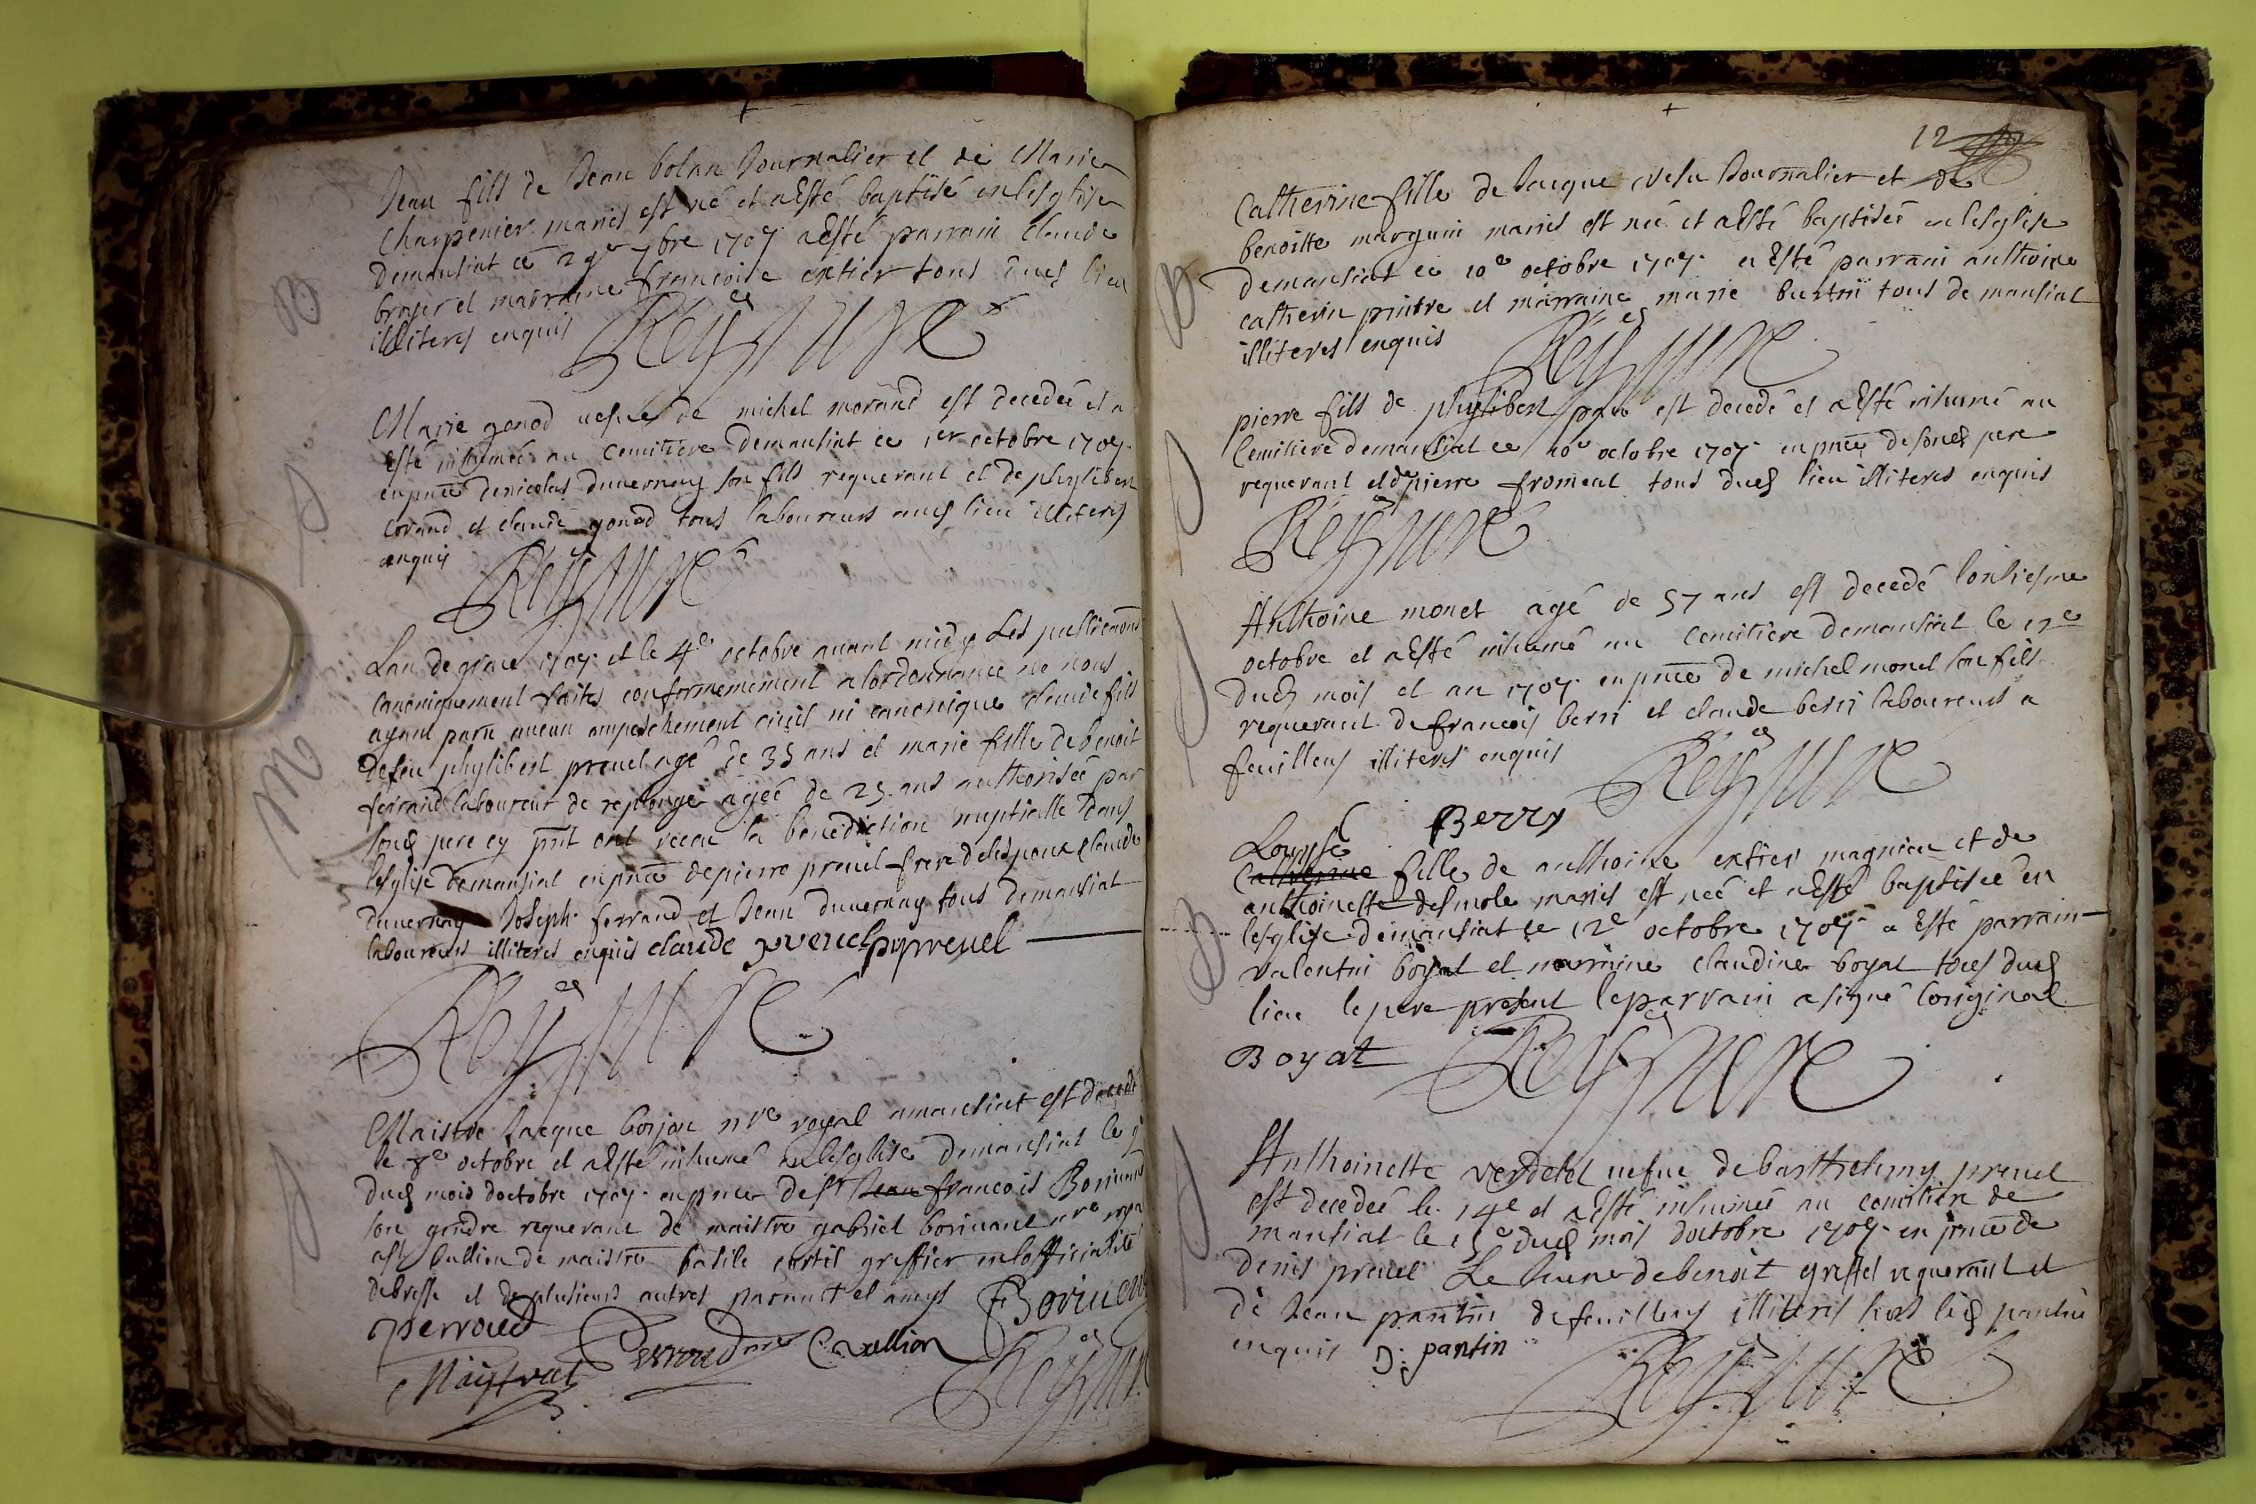 Jean fils de Jean bolan Journalier et de Marie
Charpenier mariés est né et a Esté baptisé en lesglise
demansiat ce 29e 7bre 1707 a Esté parrain Claude
broyer et marraine francoise extier tous dud lieu
illiteres enquis
Rey Cure
B
Marie gonod uefue de michel morand est decedée et a
Esté inhumée au Cemitiere demansiat ce 1er octobre 1707
en pnce de nicolas duuernay son fils requerant et de phylibert
morand et claude gonod tous laboureurs aud lieu illiteres
enquis
Rey Cure
Lan de grace 1707 et le 4e octobre auant midy Les publications
Canoniquement faites conformement a lordonnance ne nous
ayant paru aucun empeschement ciuil ni canonique claude fils
defeu phylibert preuel agé de 35 ans et marie fille de benoit
ferrand laboureur de replonge agée de 25 ans authorisée par
sond pere cy pnt ont receu la benediction nuptialle dans
lesglise demansiat en pnce de pierre preuel frere delespoux claude
duuernay Joseph ferrand et Jean duuernay tous demansiat
laboureurs illiteres enquis claude preuel p preuel
M
Rey Cure
Maistre Jacque borjon nre royal amansiat est decedé
le 8e octobre et a Esté inhumé en lesglise demansiat le
dud mois doctobre 1707 en pnce de Sr Jean francois
son gendre requerant de maistre gabriel nre
de maistre basile greffier en lofficialité
debresse et de plusieurs autres parants et amys
perroud
Perroud
Rey Cure
12
Catherine fille de Jacque Journalier et de
benoitte marguin mariés est née et a Esté baptisée en lesglise
demansiat ce 10e octobre 1707 a Esté parrain anthoine
catherin pintre et marraine marie tous de mansiat
illiteres enquis
Rey Cure
B
pierre fils de phylibert est decedé et a Esté inhumé au
Cemitiere demansiat ce 10e octobre 1707 en pnce de sond pere
requerant et de pierre froment tous dud lieu illiteres enquis
Rey Cure
Anthoine monet agé de 57 ans est decedé lonsiesme
octobre et a Esté inhumé au Cemitiere demansiat le 12e
dud mois et an 1707 en pnce de michel monet son fils
requerant de francois berri et claude berri laboureurs a
feuillens illiteres enquis
Rey Cure
Berry
Louyse
Catherine fille de anthoine extier magnien et de
anthoinette desmole mariés est née et a Esté baptisée en
lesglise demansiat ce 12e octobre 1707 a Esté parrain
Valentin boyat et marraine claudine boyat tous dud
lieu le pere present le parrain a signé loriginal
B
Boyat Rey Cure
Anthoinette Verdelet uefue de barthelemy preuel
est decedée le 14e et a Esté inhumée au cemitiere de
mansiat le 15e dud mois doctobre 1707 en pnce de
denis preuel Le Jeune de benoit greffet requerant et
de Jean pantin de feuillens illiteres hors led pantin
enquis J. pantin
Rey Cure